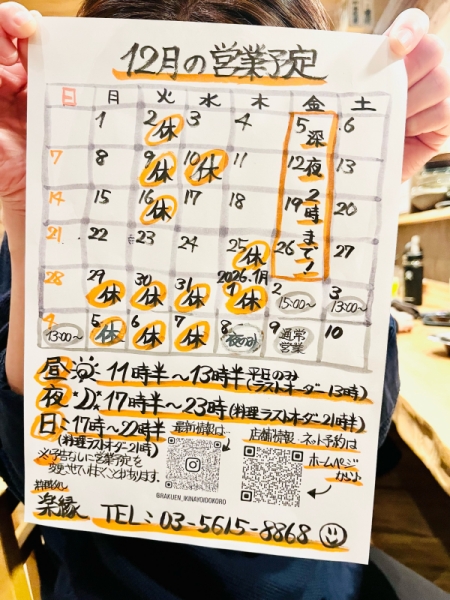 12月の営業予定
日 月 火 水 木 金 土
1 2休 3 4 5深 6
7 8 9休 10休 11 12夜 13
14 15 16休 17 18 19 2時 20
21 22 23 24 25休 26 まで! 27
28 29休 30休 31休 2026.1月 1休 2 15:00〜 3 13:00〜
4 13:00〜 5休 6休 7休 8 夜のみ 9 通常営業 10
昼 11時半〜13時半 平日のみ (ラストオーダー13時)
夜 17時〜23時 (料理ラストオーダー21時半)
日:17時〜22時 (料理ラストオーダー21時)
最新情報は…
店舗情報・ネット予約は
ホームページから
※予告なしに営業予定を
変更させていただくことあります。
@RAKUEN_IKINAYOIDOKORO
楽縁 TEL:03-5615-8868